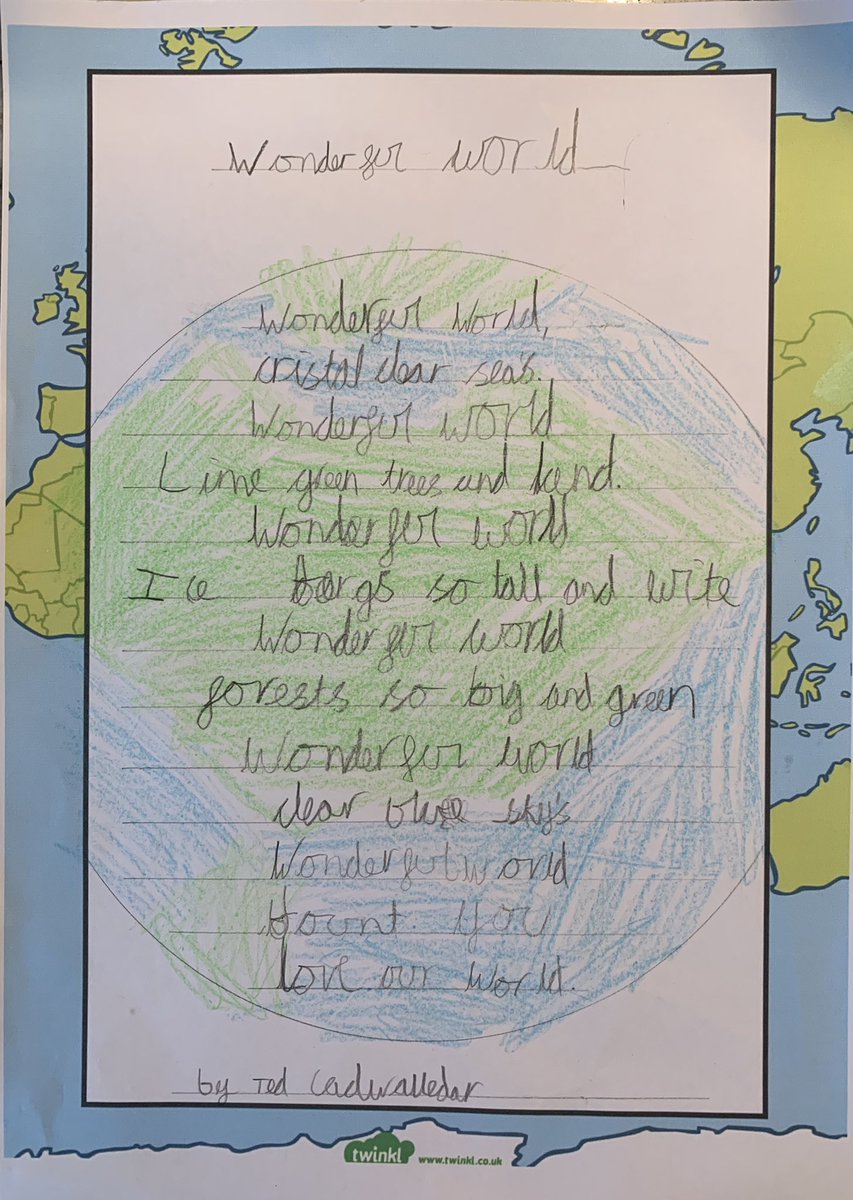 Wonderful world
Wonderful world,
cristal clear seas.
Wonderful world
Lime green trees and land.
Wonderful world
Ice bergs so tall and wite
Wonderful world
forests so big and green
Wonderful world
clear blue skys
Wonderful world
Dount you
love our world.
by Ted Cadwalledar
twinkl www.twinkl.co.uk